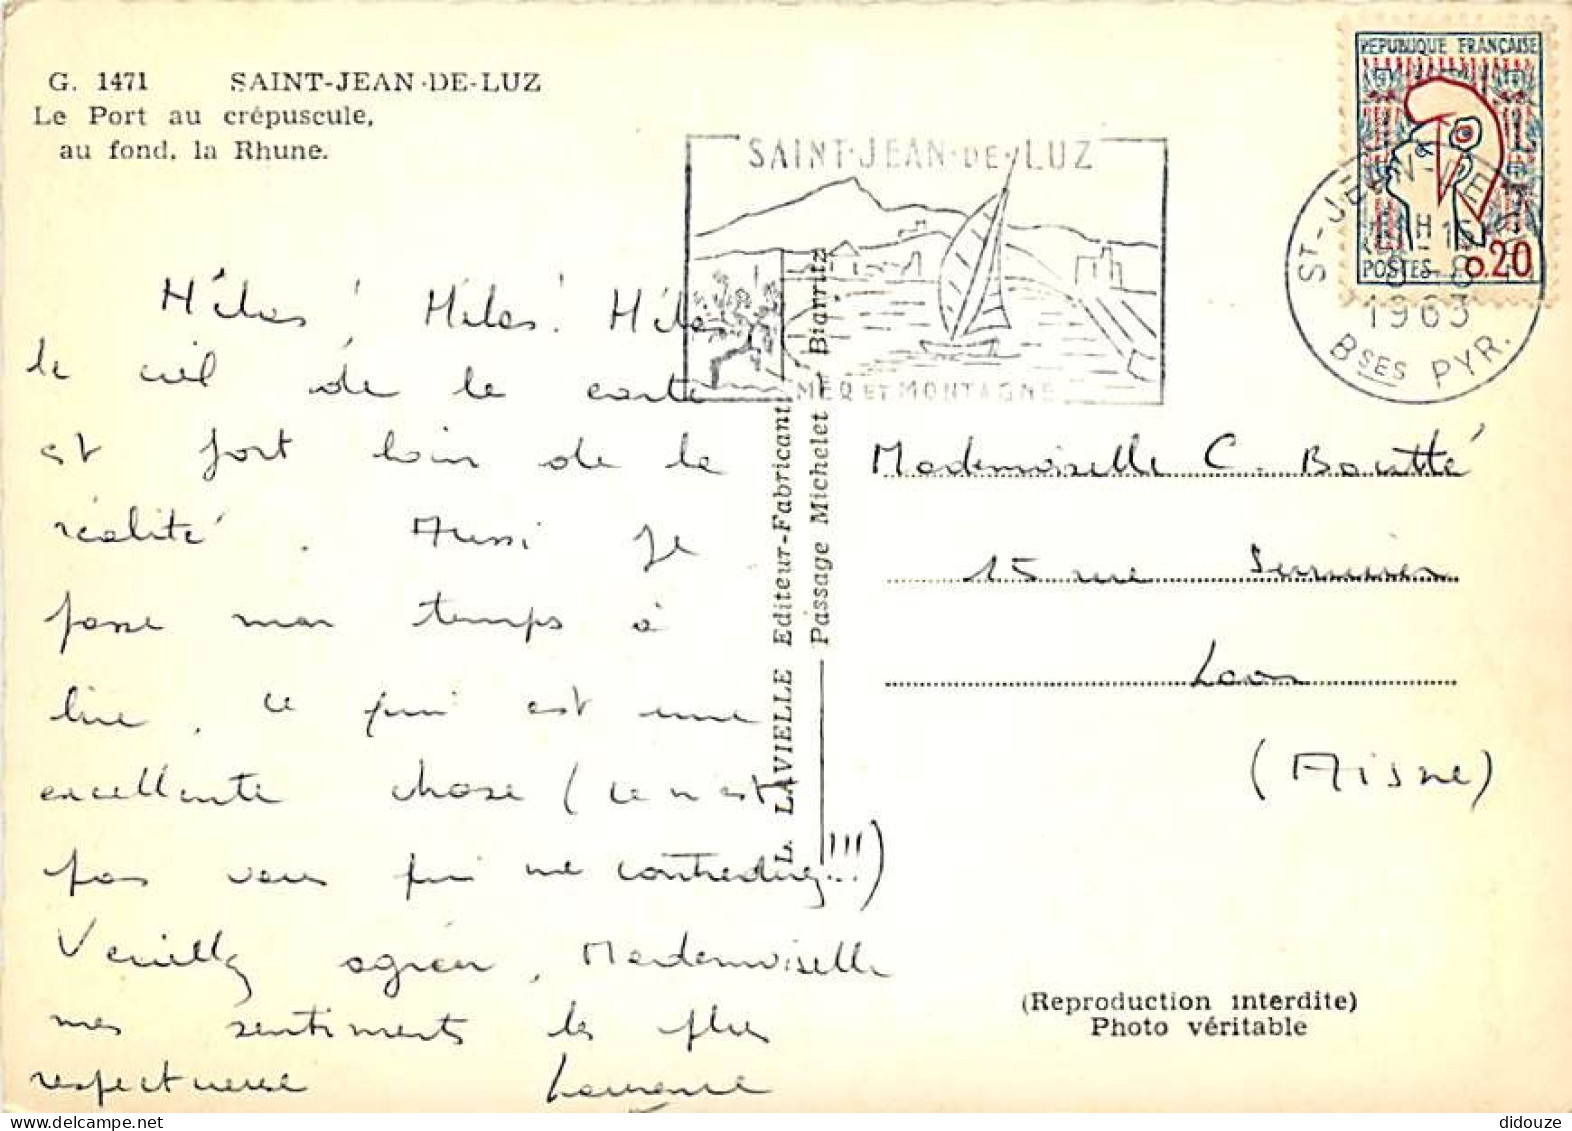 G. 1471 SAINT-JEAN-DE-LUZ
Le Port au crépuscule,
au fond, la Rhune.
REPUBLIQUE FRANÇAISE
POSTES 0.20
SAINT-JEAN-DE-LUZ
MER ET MONTAGNE
ST-JEAN-DE-
1963
BSES PYR.
Hélas! Hélas! Hélas
le ciel de la carte
est fort loin de la
réalité. Aussi je
passe mon temps à
lire, ce qui est une
excellente chose (ce n'est
pas vous qui me contredirez...!!!)
Veuillez agréer, Mademoiselle
mes sentiments les plus
respectueux Laurence
L. LAVIELLE Editeur-Fabricant
Passage Michelet Biarritz
Mademoiselle C. Boutté
15 rue
Laon
(Aisne)
(Reproduction interdite)
Photo véritable
didouze